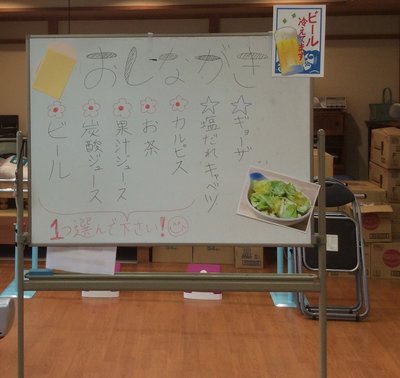 おしながき
☆ギョーザ
☆塩だれキャベツ
カルピス
お茶
果汁ジュース
炭酸ジュース
ビール
1つ選んで下さい!
ビール
冷えてます